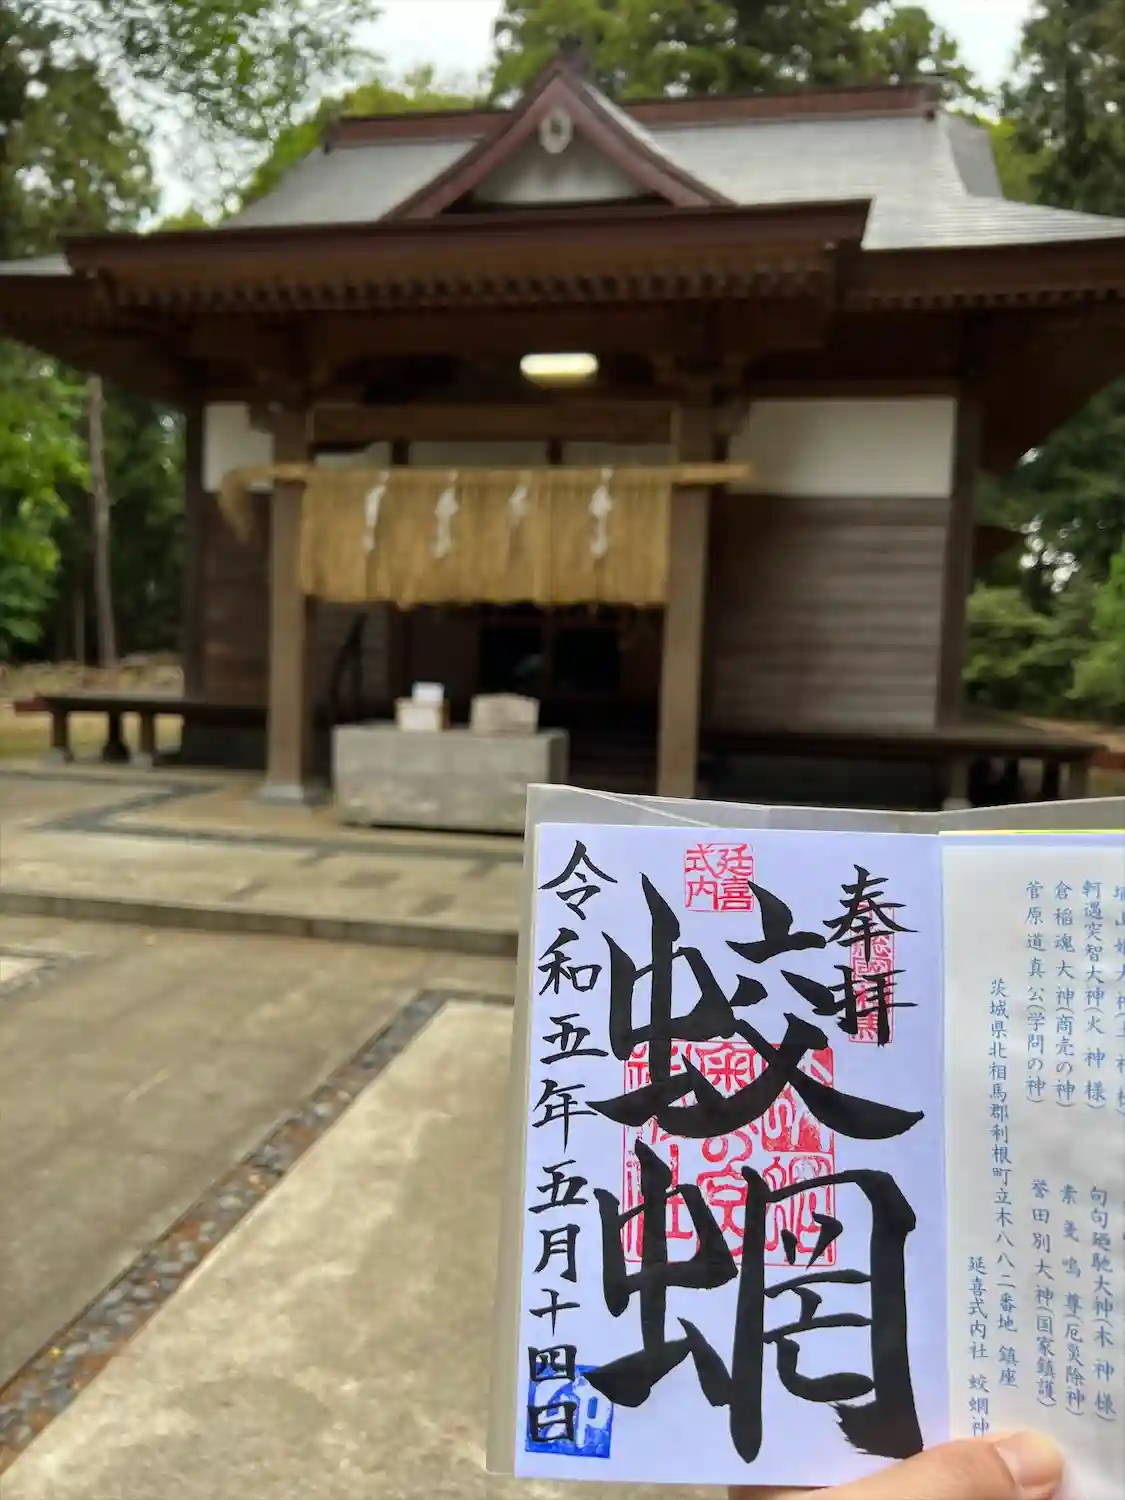 奉拝
延喜
式内
蛟蝄
令和五年五月十四日
軻遇突智大神(火神様)
倉稲魂大神(商売の神)
菅原道真公(学問の神)
句句廼馳大神(木神様)
素戔嗚尊(厄災除神)
誉田別大神(国家鎮護)
茨城県北相馬郡利根町立木八八二番地 鎮座
延喜式内社 蛟蝄神